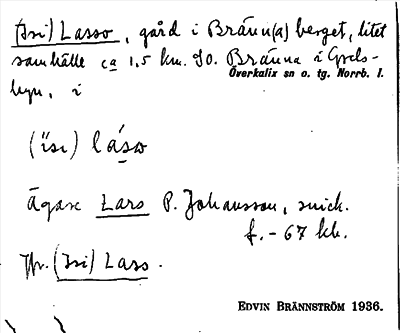 (Isi) Lasso, gård i Bränn(a)berget, litet
samhälle ca 1,5 km. SO. Bränna i Grels-
byn, i
Överkalix sn o. tg. Norrb. l.
(ïsi) lásω
Ägare Lars P. Johansson, snick.
f. -67 hh.
Jfr. (Isi) Lass.
EDVIN BRÄNNSTRÖM 1936.